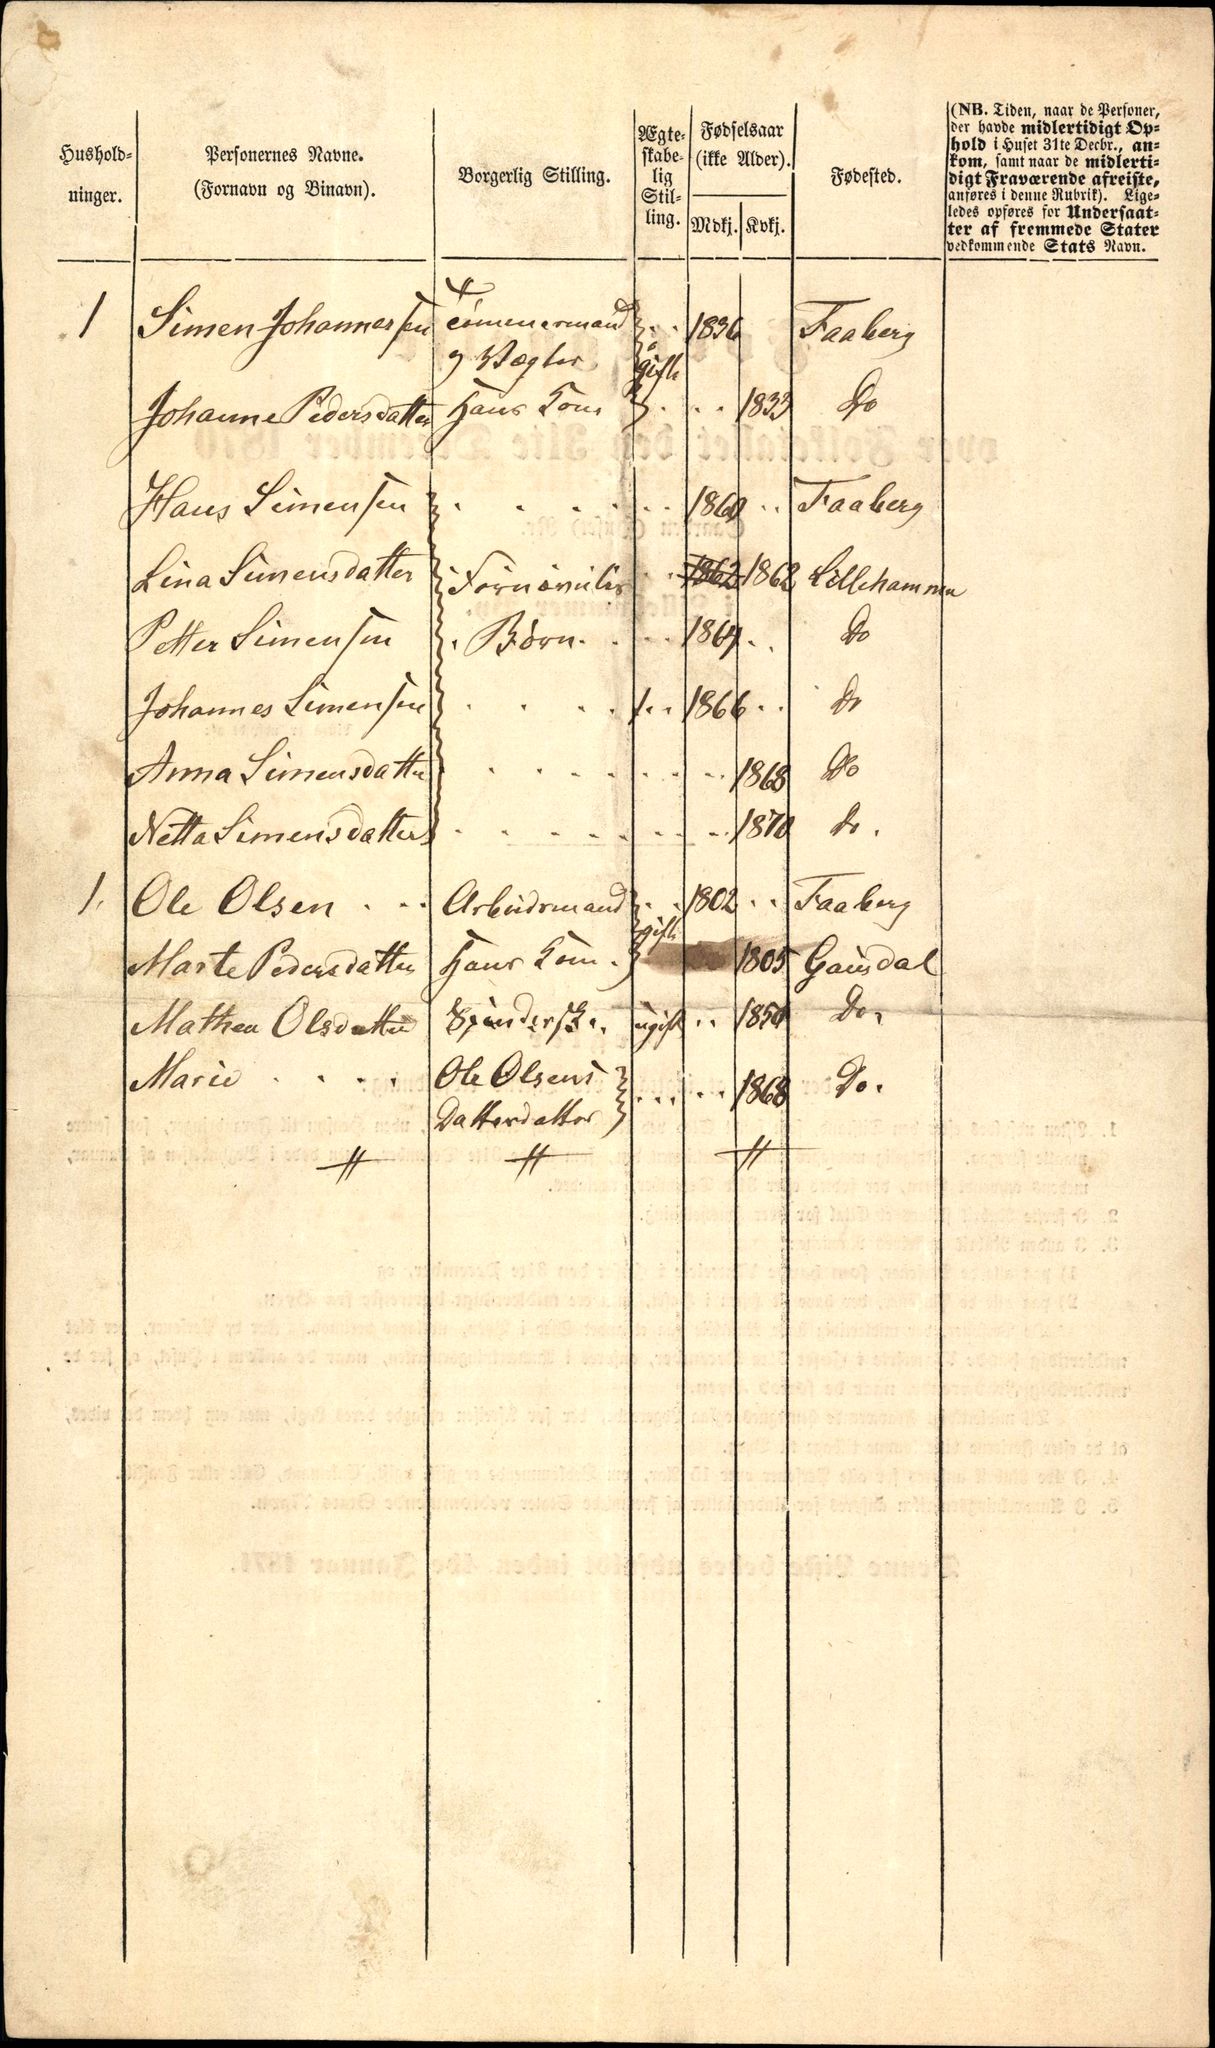 Hushold-
ninger.
Personernes Navne.
(Fornavn og Binavn).
Borgerlig Stilling.
Ægte-
skabe-
lig
Stil-
ling.
Fødselsaar
(ikke Alder).
Mdkj. Kvkj.
Fødested.
(NB. Tiden, naar de Personer,
der havde midlertidigt Op-
hold i Huset 31te Decbr., an-
kom, samt naar de midlerti-
digt Fraværende afreiste,
anføres i denne Rubrik). Lige-
ledes opføres for Undersaat-
ter af fremmede Stater
vedkommende Stats Navn.
1 Simen Johannessen Tømmermand 1836 Faaberg
og Vægter gift
Johanne Pedersdatter Hans Kone 1833 Do
Hans Simensen 1860 Faaberg
Lina Simensdatter 1862 1862 Lillehammer
Petter Simensen Børn 1864 Do
Johannes Simensen 1866 Do
Anna Simensdatter 1868 Do
Netta Simensdatter 1870 Do.
1. Ole Olsen Arbeidsmand 1802 Faaberg
gift
Marte Pedersdatter Hans Kone 1805 Gausdal
Mathea Olsdatter Spinderske ugift 1850 Do.
Marie Ole Olsens 1868 Do.
Datterdatter